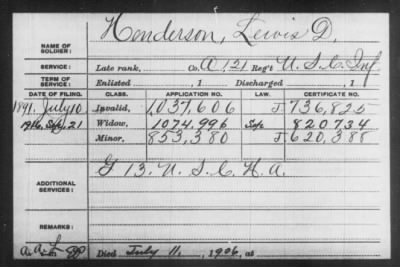 NAME OF SOLDIER: Henderson, Lewis D.
SERVICE: Late rank, Co. A, 121 Reg't U. S. C. Inf
TERM OF SERVICE: Enlisted , 1 Discharged , 1
DATE OF FILING. CLASS. APPLICATION NO. LAW. CERTIFICATE NO.
1891, July 10 Invalid, 1,037,606 J. 736,825
1906, Sep. 21 Widow, 1074,996 820734
Minor, 853,380 J. 620,388
ADDITIONAL SERVICES: G 13. U. S. C. H. A.
REMARKS:
Died July 11, 1906, at